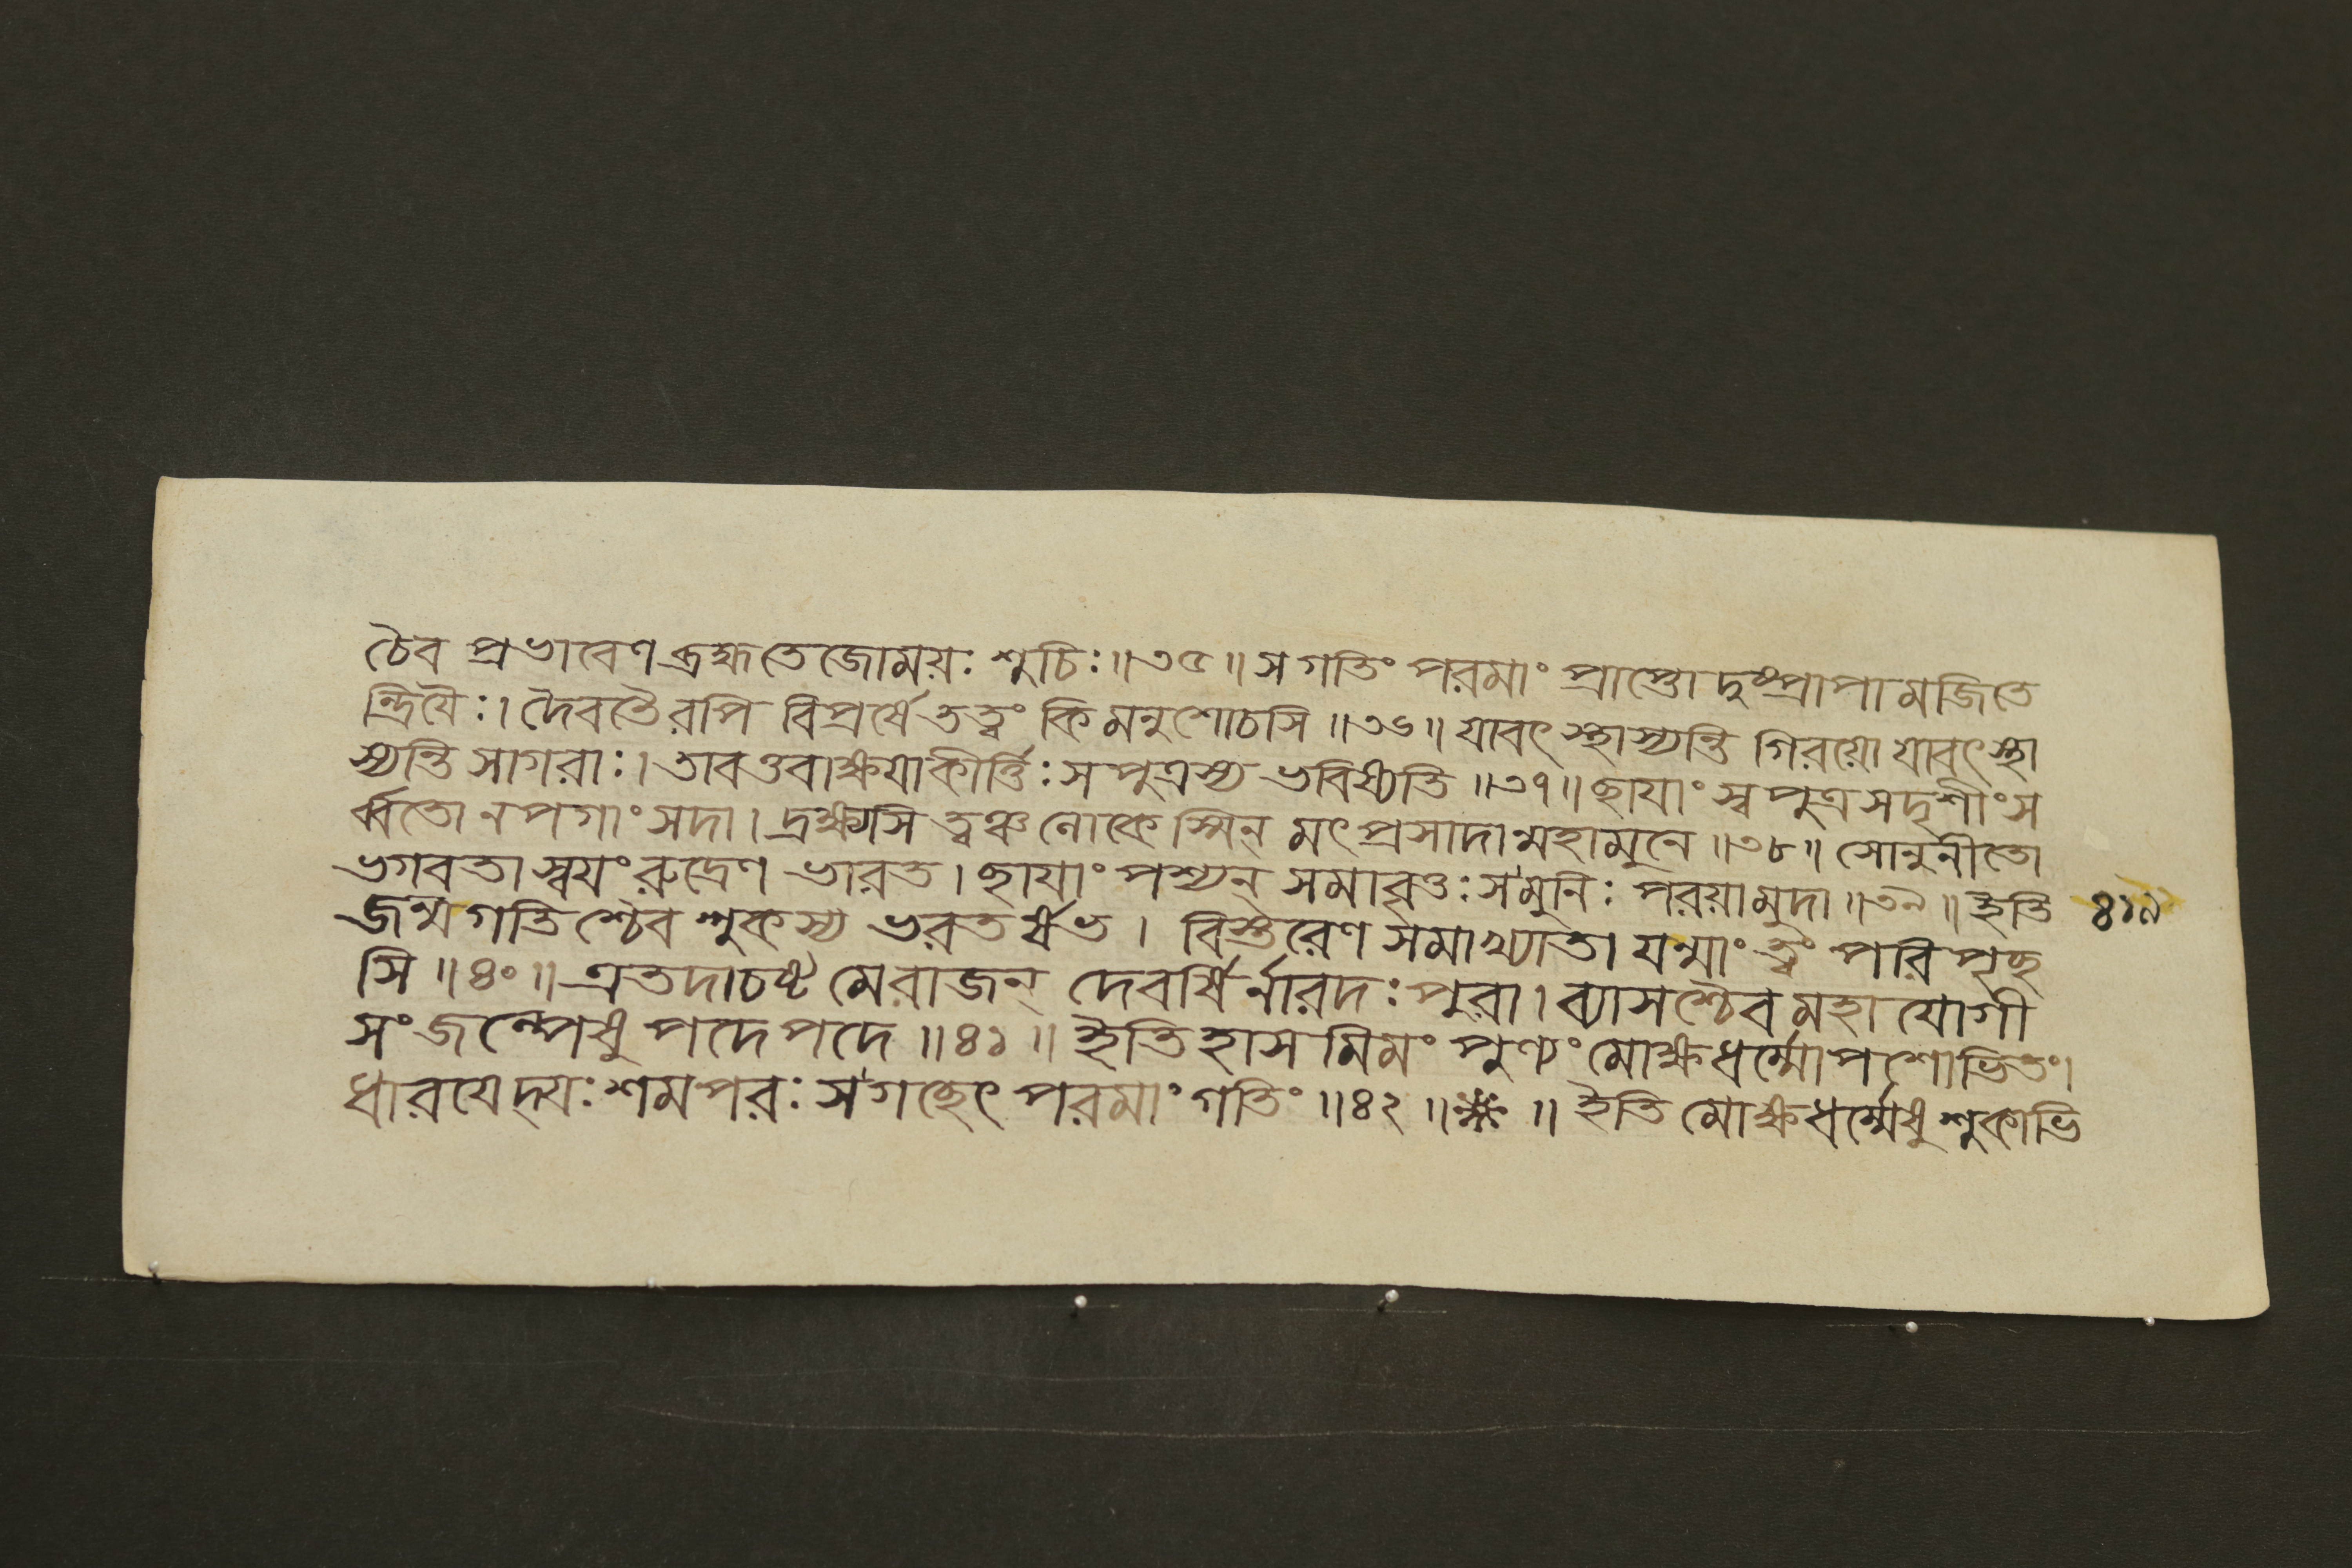 চৈব প্রভাবেণ ব্রহ্মতেজোময়ঃ শুচিঃ॥৩৫॥ স গতিং পরমাং প্রাপ্তো দুষ্প্রাপামজিতে
ন্দ্রিয়ৈঃ। দৈবতৈরপি বিপ্রর্ষে তত্ত্বং কিমনুশোচসি॥৩৬॥ যাবৎ স্থাস্যন্তি গিরয়ো যাবৎ স্থা
স্যন্তি সাগরাঃ। তাবত্তবাক্ষয়াকীর্ত্তিঃ সপুত্রস্য ভবিষ্যতি॥৩৭॥ ছায়াং স্বপুত্রসদৃশীং স
র্ব্বতোনপগাং সদা। দ্রক্ষ্যসি ত্বঞ্চ লোকেস্মিন্ মৎপ্রসাদান্মহামুনে॥৩৮॥ সোনুনীতো
ভগবতা স্বয়ং রুদ্রেণ ভারত। ছায়াং পশ্যন্ সমাবৃত্তঃ স মুনিঃ পরয়ামুদা॥৩৯॥ ইতি ৪১৯
জন্মগতিশ্চৈব শুকস্য ভরতর্ষভ। বিস্তরেণ সমাখ্যাতা যন্মাং ত্বং পরিপৃচ্ছ
সি॥৪০॥ এতদাচষ্ট মে রাজন্ দেবর্ষির্নারদঃ পুরা। ব্যাসশ্চৈব মহাযোগী
সংজল্পেষু পদে পদে॥৪১॥ ইতিহাসমিমং পুণ্যং মোক্ষধর্ম্মোপশোভিতং।
ধারয়েদ্যঃ শমপরঃ স গচ্ছেৎ পরমাং গতিং॥৪২॥ ※॥ ইতি মোক্ষধর্ম্মেষু শুকাভি